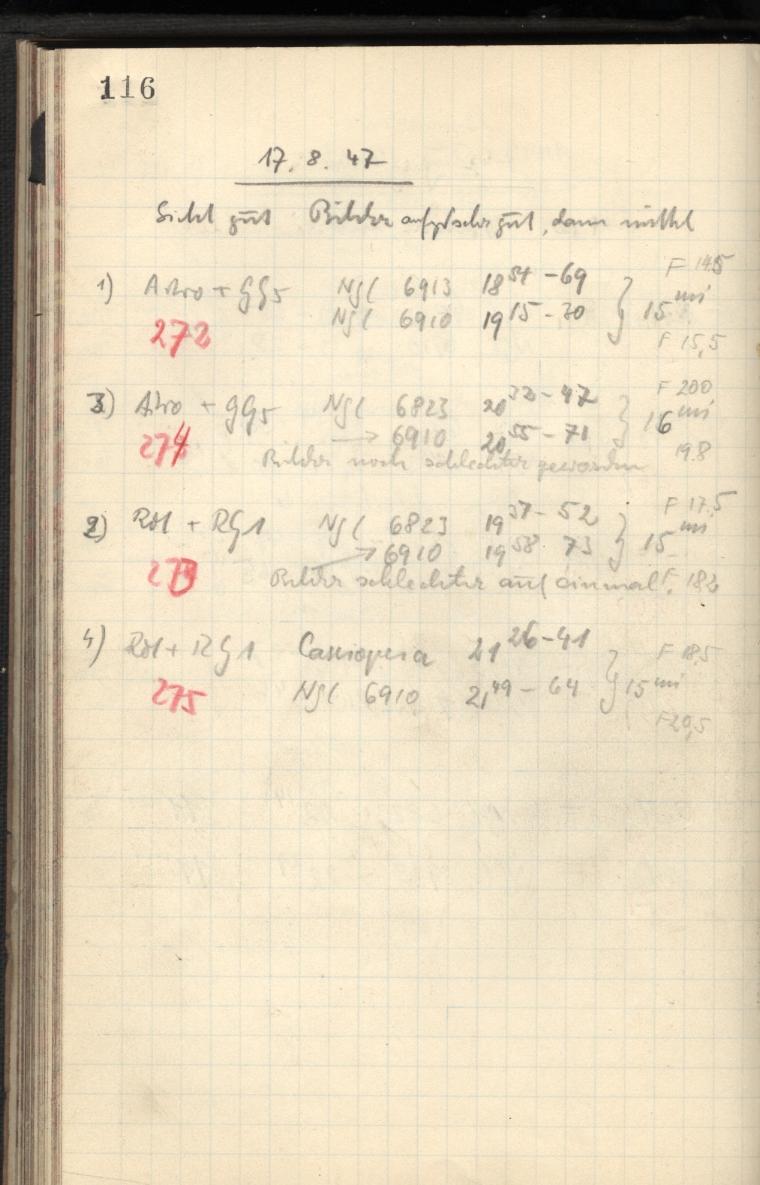 116
17. 8. 47
Sicht gut Bilder anfgs sehr gut, dann mittel
1) Astro + GG5 NGC 6913 18 54-69 F 14.5
NGC 6910 19 15-30 15 min
272 F 15,5
3) Astro + GG5 NGC 6823 20 32-47 F 200
→ 6910 20 55-71 16 min
274 Bilder noch schlechter geworden 19.8
2) Rot + RG1 NGC 6823 19 37-52 F 17.5
→ 6910 19 58-73 15 min
273 Bilder schlechter auf einmal! F. 182
4) Rot + RG1 Cassiopeia 21 26-41 F 18.5
275 NGC 6910 21 49-64 15 min
F 20,5